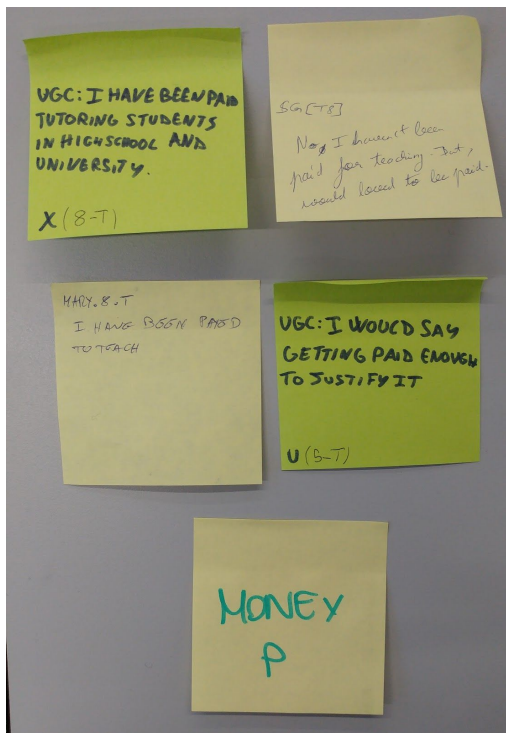 UGC: I HAVE BEEN PAID
TUTORING STUDENTS
IN HIGHSCHOOL AND
UNIVERSITY.
X (8-T)
SG [T8]
No, I haven't been
paid for teaching. But,
would loved to be paid.
MARY.8.T
I HAVE BEEN PAYED
TO TEACH
UGC: I WOULD SAY
GETTING PAID ENOUGH
TO JUSTIFY IT
U (5-T)
MONEY
P